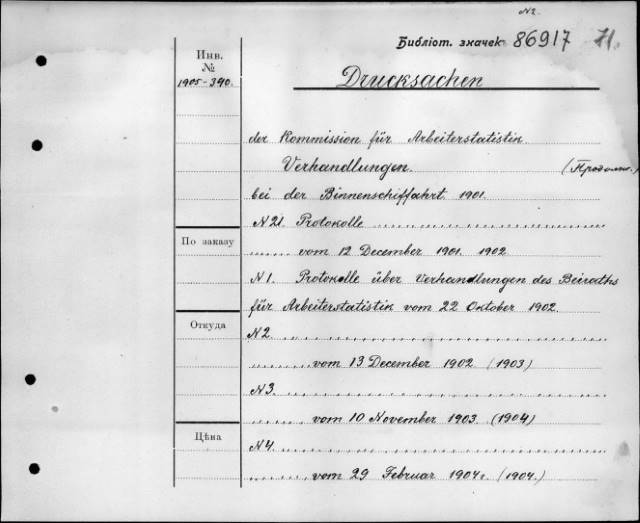 N2.
Библіот. значек 86917 71.
Инв.
№
1905-390.
Drucksachen
der Kommission für Arbeiterstatistik
Verhandlungen. (Продолж.)
bei der Binnenschiffahrt. 1901.
N21. Protokolle
По заказу
vom 12 December 1901. 1902.
N1. Protokolle über Verhandlungen des Beiraths
für Arbeiterstatistik vom 22 Oktober 1902.
Откуда
N2.
vom 13 December 1902. (1903)
N3.
vom 10 November 1903. (1904)
Цѣна
N4.
vom 29 Februar 1904г. (1904.)